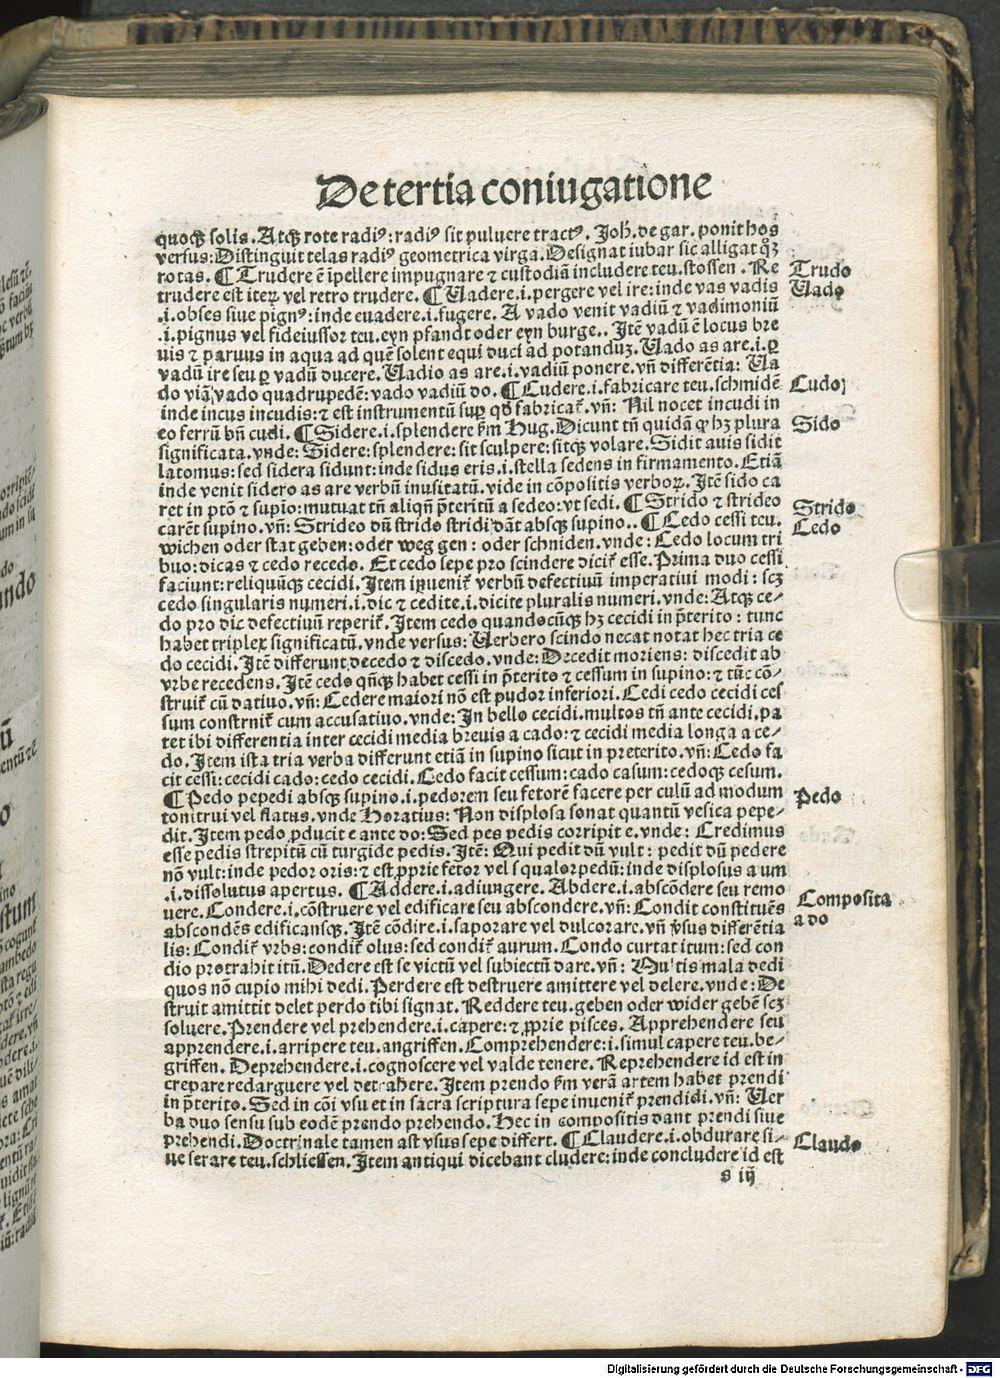 De tertia coniugatione
quoqꝫ solis. Atqꝫ rote radiꝰ: radiꝰ sit puluere tractꝰ. Joh̄. de gar. ponit hos
versus: Distinguit telas radiꝰ geometrica virga. Designat iubar sic alligat qꝫ
rotas. ¶ Trudere ē īpellere impugnare ⁊ custodiā includere teu. stossen. Re
Trudo
trudere est iteꝝ vel retro trudere. ¶ Uadere .i. pergere vel ire: inde vas vadis
Uado
.i. obses siue pignꝰ: inde euadere .i. fugere. A vado venit vadiū ⁊ vadimoniū
.i. pignus vel fideiussor teu. eyn pfandt oder eyn burge.. Itē vadū ē locus bre
uis ⁊ paruus in aqua ad quē solent equi duci ad potanduꝫ. Uado as are .i. ꝑ
vadū ire seu ꝑ vadū ducere. Uadio as are .i. vadiū ponere. vn̄ differētia: Ua
do viā vado quadrupedē: vado vadiū do. ¶ Cudere .i. fabricare teu. schmidē
Cudo
inde incus incudis: ⁊ est instrumentū suꝑ qd̄ fabricat̄. vn̄: Nil nocet incudi in
eo ferrū bn̄ cudi. ¶ Sidere .i. splendere ẜm Hug. Dicunt tn̄ quidā ꝙ hꝫ plura
Sido
significata. vnde: Sidere: splendere: sit sculpere: sitqꝫ volare. Sidit auis sidit
latomus: sed sidera sidunt: inde sidus eris .i. stella sedens in firmamento. Etiā
inde venit sidero as are verbū inusitatū. vide in cōpositis verboꝝ. Itē sido ca
ret in ptō ⁊ supio: mutuat tn̄ aliqn̄ p̄teritū a sedeo: vt sedi. ¶ Strido ⁊ strideo
Strido
carēt supino. vn̄: Strideo dū strido stridi dāt absqꝫ supino.. ¶ Cedo cessi teu.
Cedo
wichen oder stat geben: oder weg gen: oder schniden. vnde: Cedo locum tri
buo: dicas ⁊ cedo recedo. Et cedo sepe pro scindere dicit̄ esse. Prima duo cessi
faciunt: reliquūqꝫ cecidi. Item īuenit̄ verbū defectiuū imperatiui modi: scꝫ
cedo singularis numeri .i. dic ⁊ cedite .i. dicite pluralis numeri. vnde: Atqꝫ ce⸗
do pro dic defectiuū reperit̄. Item cedo quandocūqꝫ hꝫ cecidi in p̄terito: tunc
habet triplex significatū. vnde versus: Uerbero scindo necat notat hec tria ce
do cecidi. Itē differunt decedo ⁊ discedo. vnde: Decedit moriens: discedit ab
vrbe recedens. Itē cedo qn̄qꝫ habet cessi in p̄terito ⁊ cessum in supino: ⁊ tūc cō⸗
struit̄ cū datiuo. vn̄: Cedere maiori nō est pudor inferiori. Cedi cedo cecidi ces
sum construit̄ cum accusatiuo. vnde: In bello cecidi. multos tn̄ ante cecidi. pa
tet ibi differentia inter cecidi media breuis a cado: ⁊ cecidi media longa a ce⸗
do. Item ista tria verba differunt etiā in supino sicut in preterito. vn̄: Cedo fa
cit cessi: cecidi cado: cedo cecidi. Cedo facit cessum: cado casum: cedoqꝫ cesum.
¶ Pedo pepedi absqꝫ supino .i. pedorem seu fetorē facere per culū ad modum
Pedo
tonitrui vel flatus. vnde Horatius: Non displosa sonat quantū vesica pepe⸗
dit. Item pedo ꝓducit e ante do: Sed pes pedis corripit e. vnde: Credimus
esse pedis strepitū cū turgide pedis. Itē: Qui pedit dū vult: pedit dū pedere
nō vult: inde pedor oris: ⁊ est ꝓprie fetor vel squalor pedū: inde displosus a um
.i. dissolutus apertus. ¶ Addere .i. adiungere. Abdere .i. abscōdere seu remo
Composita
a do
uere. Condere .i. cōstruere vel edificare seu abscondere. vn̄: Condit constituēs
abscondēs edificansqꝫ. Itē cōdire .i. saporare vel dulcorare. vn̄ ꝟsus differētia
lis: Condit̄ vrbs: condit̄ olus: sed condit̄ aurum. Condo curtat itum: sed con
dio protrahit itū. Dedere est se victū vel subiectū dare. vn̄: Qu tis mala dedi
quos nō cupio mihi dedi. Perdere est destruere amittere vel delere. vnde: De
struit amittit delet perdo tibi signat. Reddere teu. geben oder wider gebē scꝫ
soluere. Prendere vel prehendere .i. capere: ⁊ ꝓprie pisces. Apprehendere seu
apprendere .i. arripere teu. angriffen. Comprehendere: i. simul capere teu. be⸗
griffen. Deprehendere .i. cognoscere vel valde tenere. Reprehendere id est in
crepare redarguere vel detrahere. Item prendo ẜm verā artem habet prendi
in p̄terito. Sed in cōi vsu et in sacra scriptura sepe inuenit̄ prendidi. vn̄: Uer
ba duo sensu sub eodē prendo prehendo. Hec in compositis dant prendi siue
prehendi. Doctrinale tamen ast vsus sepe differt. ¶ Claudere .i. obdurare si⸗
Claudo
ue serare teu. schliessen. Item antiqui dicebant cludere: inde concludere id est
s iij
Digitalisierung gefördert durch die Deutsche Forschungsgemeinschaft - DFG